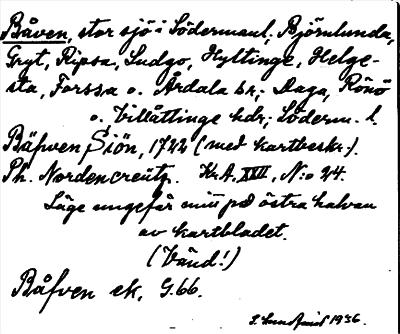 Båven, stor sjö i Södermanl., Björnlunda,
Gryt, Ripsa, Ludgo, Hyltinge, Helge-
sta, Forssa o. Årdala skr; Daga, Rönö
o. Villåttinge hdr; Söderm. l.
Båfwen Siön, 1722 (med kartbeskr.).
Ph. Nordencreutz. Kr.A. XXII, N:o 24.
Läge ungefär mitt på östra halvan
av kartbladet.
(Vänd!)
Båfven ek. G.66.
1936.